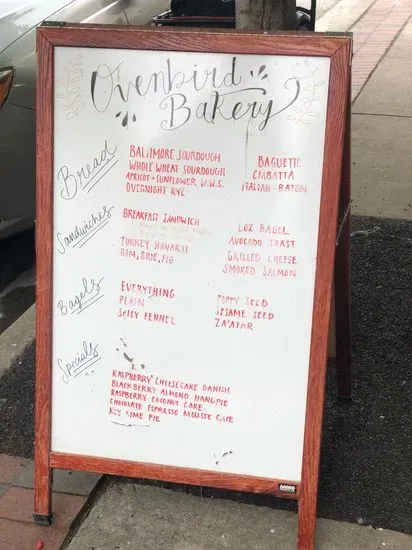 Ovenbird
Bakery
Bread
BALTIMORE SOURDOUGH
WHOLE WHEAT SOURDOUGH
APRICOT + SUNFLOWER W.W.S.
OVERNIGHT RYE
BAGUETTE
CIABATTA
ITALIAN BATON
Sandwiches
BREAKFAST SANDWICH
TURKEY HAVARTI
HAM, BRIE, FIG
LOX BAGEL
AVOCADO TOAST
GRILLED CHEESE
SMOKED SALMON
Bagels
EVERYTHING
PLAIN
SPICY FENNEL
POPPY SEED
SESAME SEED
ZA'ATAR
Specials
RASPBERRY CHEESECAKE DANISH
BLACKBERRY ALMOND HANDPIE
RASPBERRY COCONUT CAKE
CHOCOLATE ESPRESSO MOUSSE CAKE
KEY LIME PIE